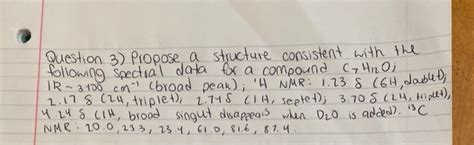 Question 3) Propose a structure consistent with the
following spectral data for a compound C7H12O;
IR ~ 3400 cm⁻¹ (broad peak); ¹H NMR: 1.23 δ (6H, doublet);
2.17 δ (2H, triplet); 2.74 δ (1H, septet); 3.70 δ (2H, triplet),
4.24 δ (1H, broad singlet disappears when D2O is added). ¹³C
NMR: 20.0, 23.3, 23.4, 61.0, 81.6, 87.4.